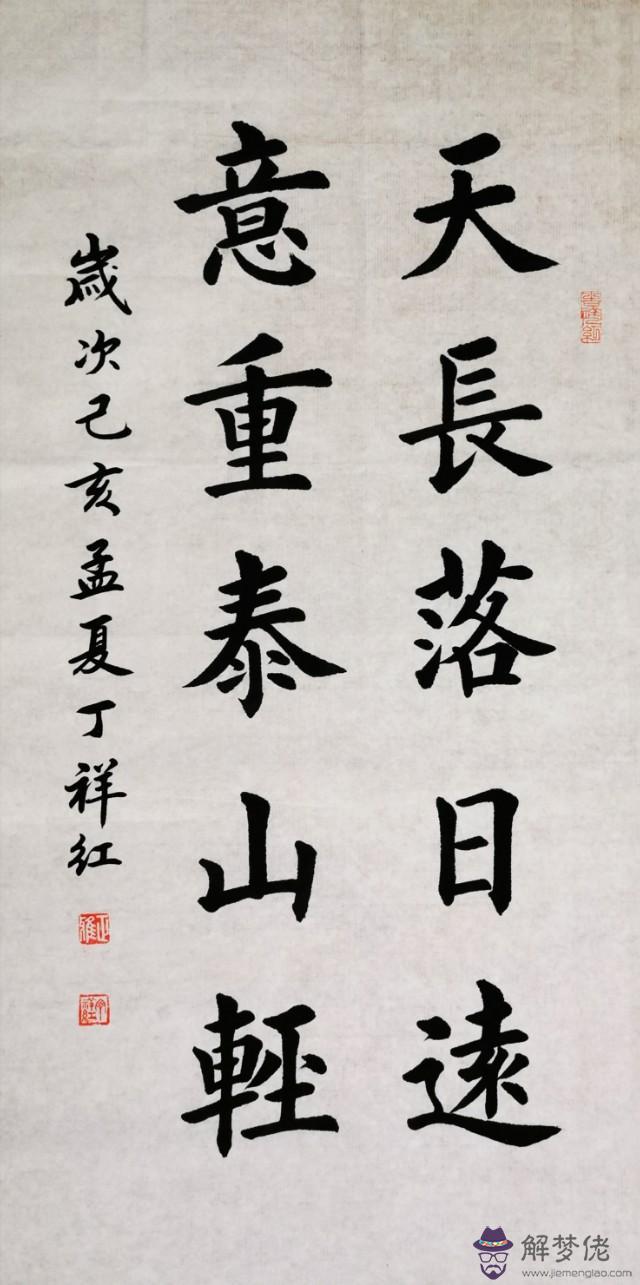 天長落日遠
意重泰山輕
歲次己亥孟夏丁祥紅
解梦佬
www.jiemenglao.com